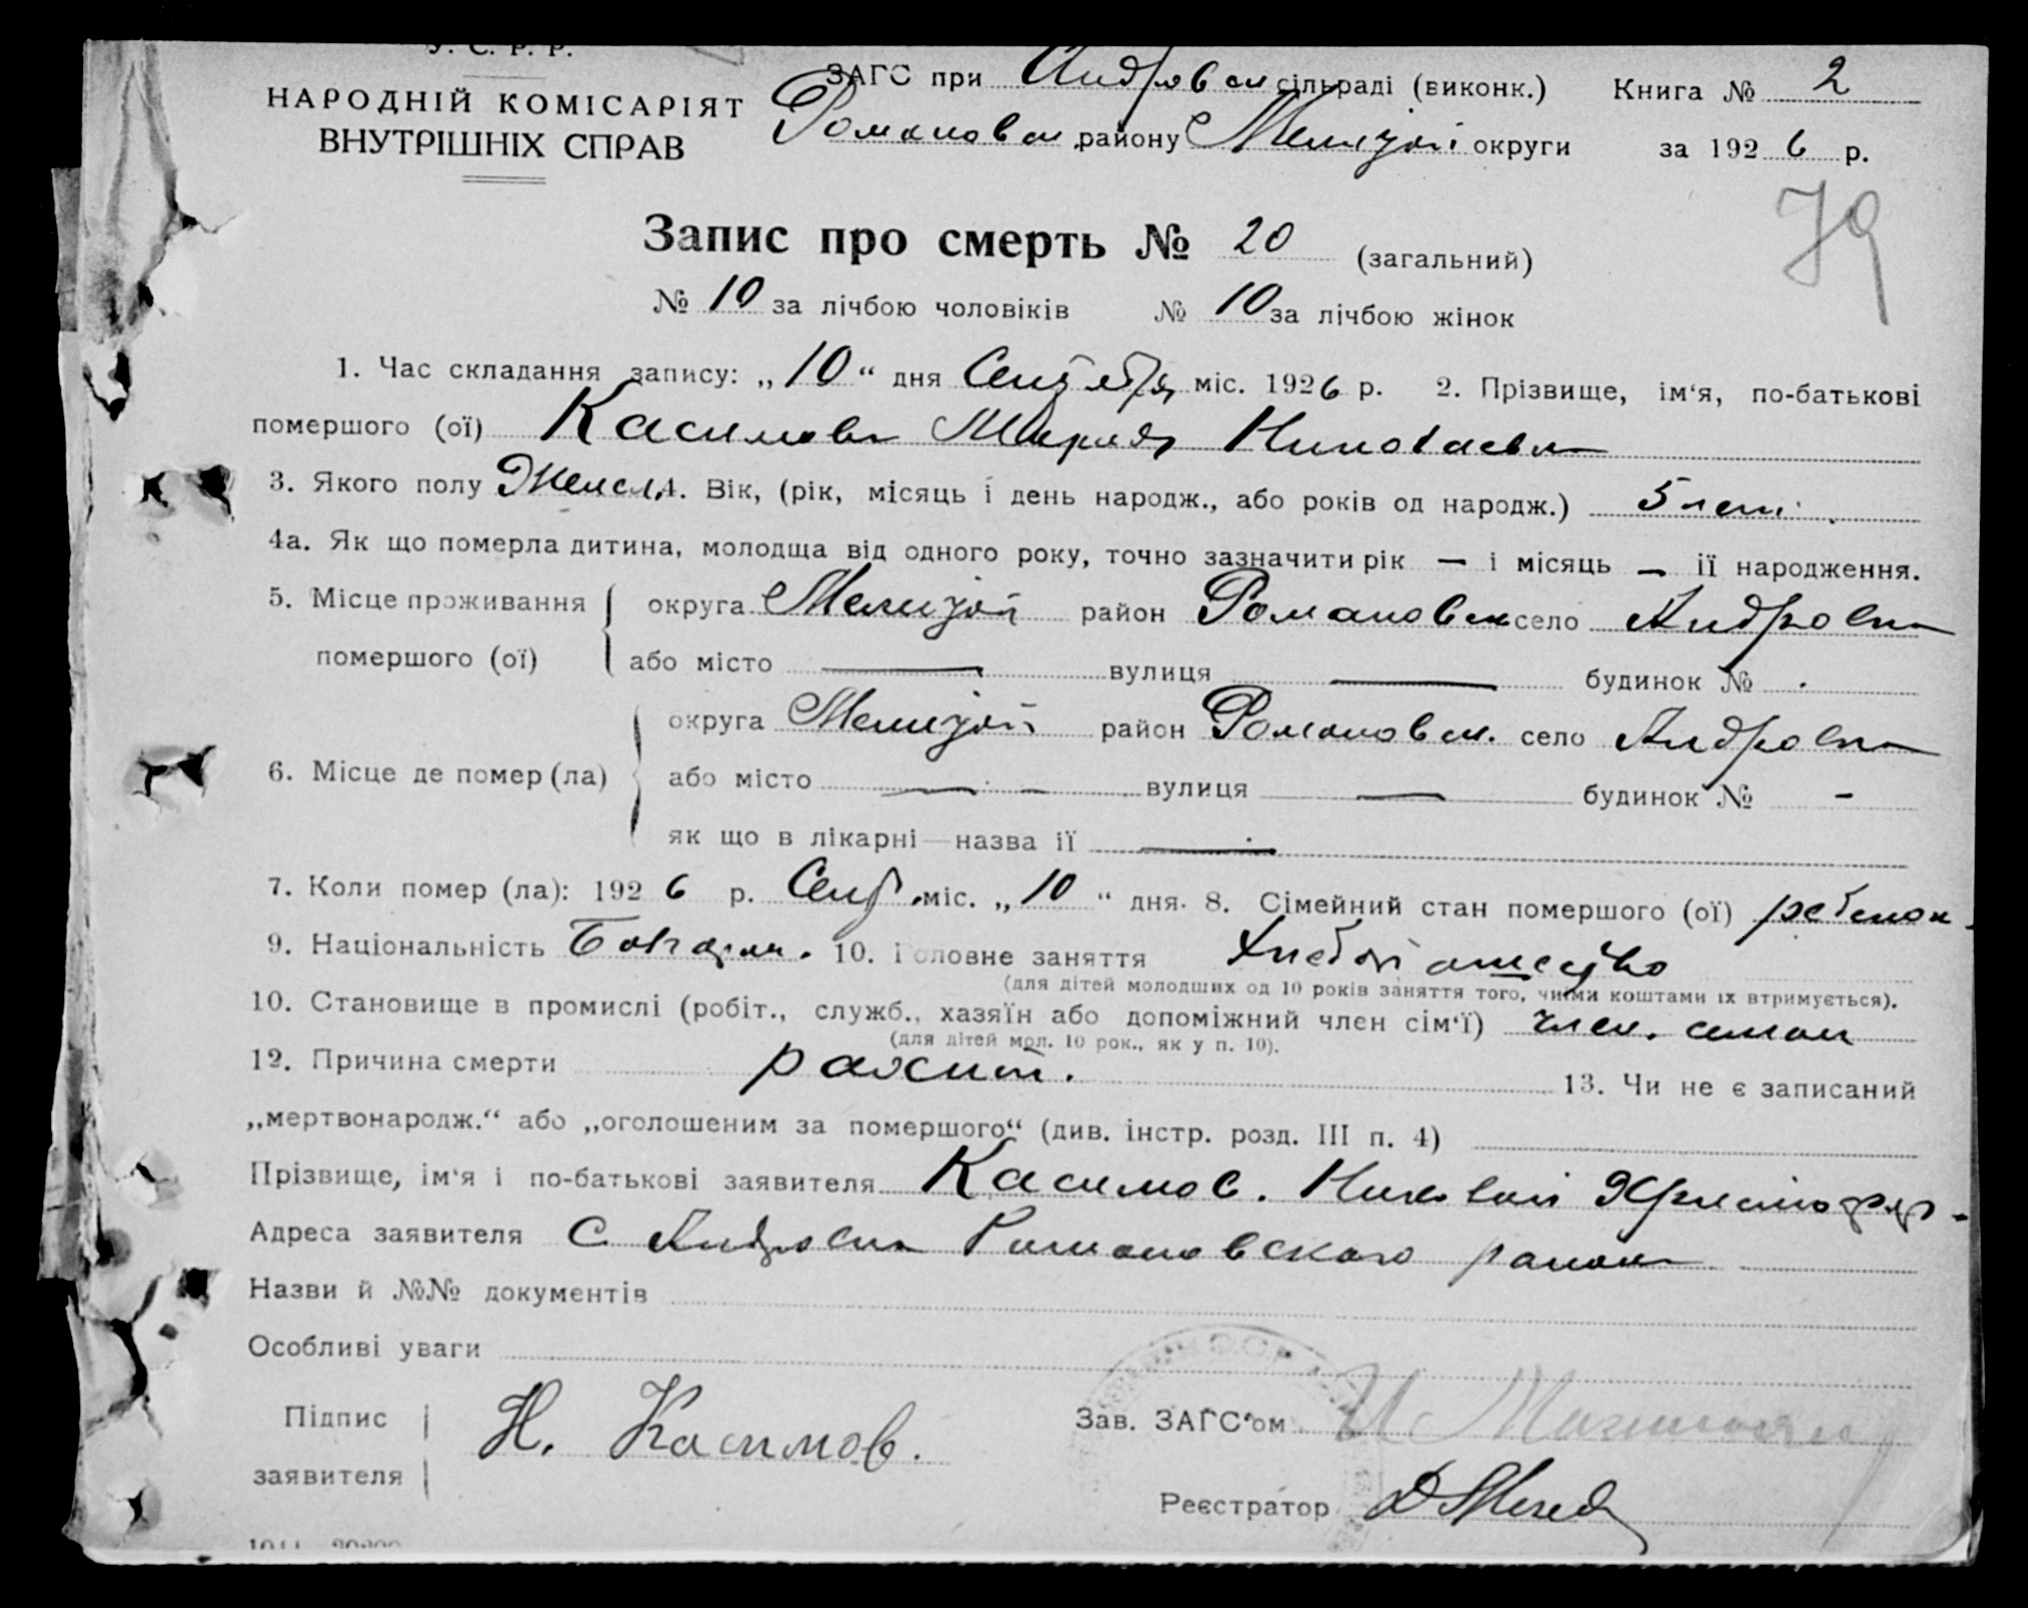 У. С. Р. Р.
НАРОДНІЙ КОМІСАРІЯТ
ВНУТРІШНІХ СПРАВ
ЗАГС при Андровск сільраді (виконк.) Книга № 2
Романовск району Мелитоп округи за 1926 р.
79
Запис про смерть № 20 (загальний)
№ 10 за лічбою чоловіків № 10 за лічбою жінок
1. Час складання запису: „10“ дня Сентября міс. 1926 р. 2. Прізвище, ім‘я, по-батькові
помершого (ої) Касимова Мария Николаевна
3. Якого полу Женск. 4. Вік, (рік, місяць і день народж., або років од народж.) 5 лет
4а. Як що померла дитина, молодща від одного року, точно зазначити рік — і місяць — ії народження.
5. Місце проживання помершого (ої) округа Мелитоп район Романовск село Андровка
або місто — вулиця — будинок №
6. Місце де помер (ла) округа Мелитоп район Романовск. село Андровка
або місто — вулиця — будинок № -
як що в лікарні—назва її —
7. Коли помер (ла): 1926 р. Сент. міс. „10“ дня. 8. Сімейний стан помершого (ої) ребенок
9. Національність Болгарк. 10. Головне заняття
(для дітей молодших од 10 років заняття того, чиїми коштами їх втримується).
10. Становище в промислі (робіт., служб., хазяїн або допоміжний член сім‘ї) член. семьи
(для дітей мол. 10 рок., як у п. 10).
12. Причина смерти рахит. 13. Чи не є записаний
„мертвонародж.“ або „оголошеним за помершого“ (див. інстр. розд. III п. 4)
Прізвище, ім‘я і по-батькові заявителя Касимов. Николай
Адреса заявителя С. Андровка Романовского района
Назви й №№ документів
Особливі уваги
Підпис заявителя Н. Касимов.
Зав. ЗАГС‘ом
Реєстратор